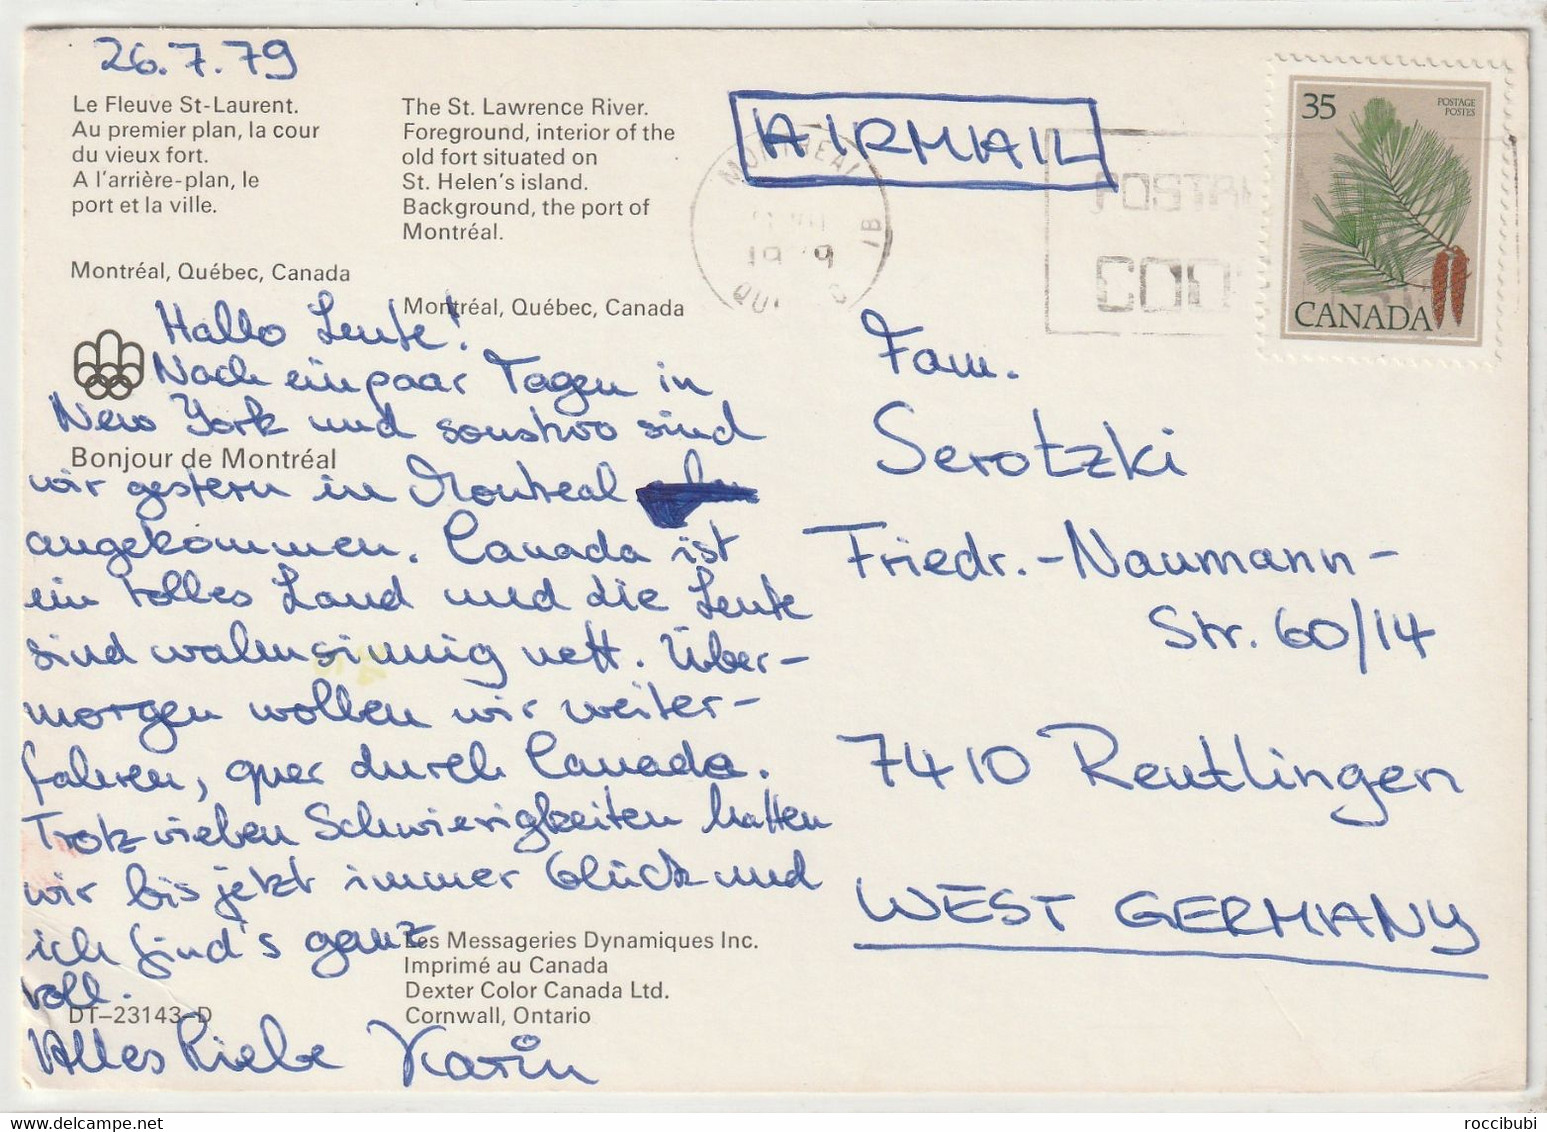 26.7.79
Le Fleuve St-Laurent.
Au premier plan, la cour
du vieux fort.
A l'arrière-plan, le
port et la ville.
Montréal, Québec, Canada
The St. Lawrence River.
Foreground, interior of the
old fort situated on
St. Helen's island.
Background, the port of
Montréal.
Montréal, Québec, Canada
AIRMAIL
35
POSTAGE
POSTES
CANADA
Hallo Leute!
Nach ein paar Tagen in
New York und sonstwo sind
Bonjour de Montréal
wir gestern in Montreal
angekommen. Canada ist
ein tolles Land und die Leute
sind wahnsinnig nett. Über-
morgen wollen wir weiter-
fahren, quer durch Canada.
Trotz vielen Schwierigkeiten hatten
wir bis jetzt immer Glück und
ich find's ganz
toll.
Alles Liebe Karin
Les Messageries Dynamiques Inc.
Imprimé au Canada
Dexter Color Canada Ltd.
Cornwall, Ontario
DT-23143-D
Fam.
Serotzki
Friedr.-Naumann-
Str. 60/14
7410 Reutlingen
WEST GERMANY
delcampe.net
roccibubi